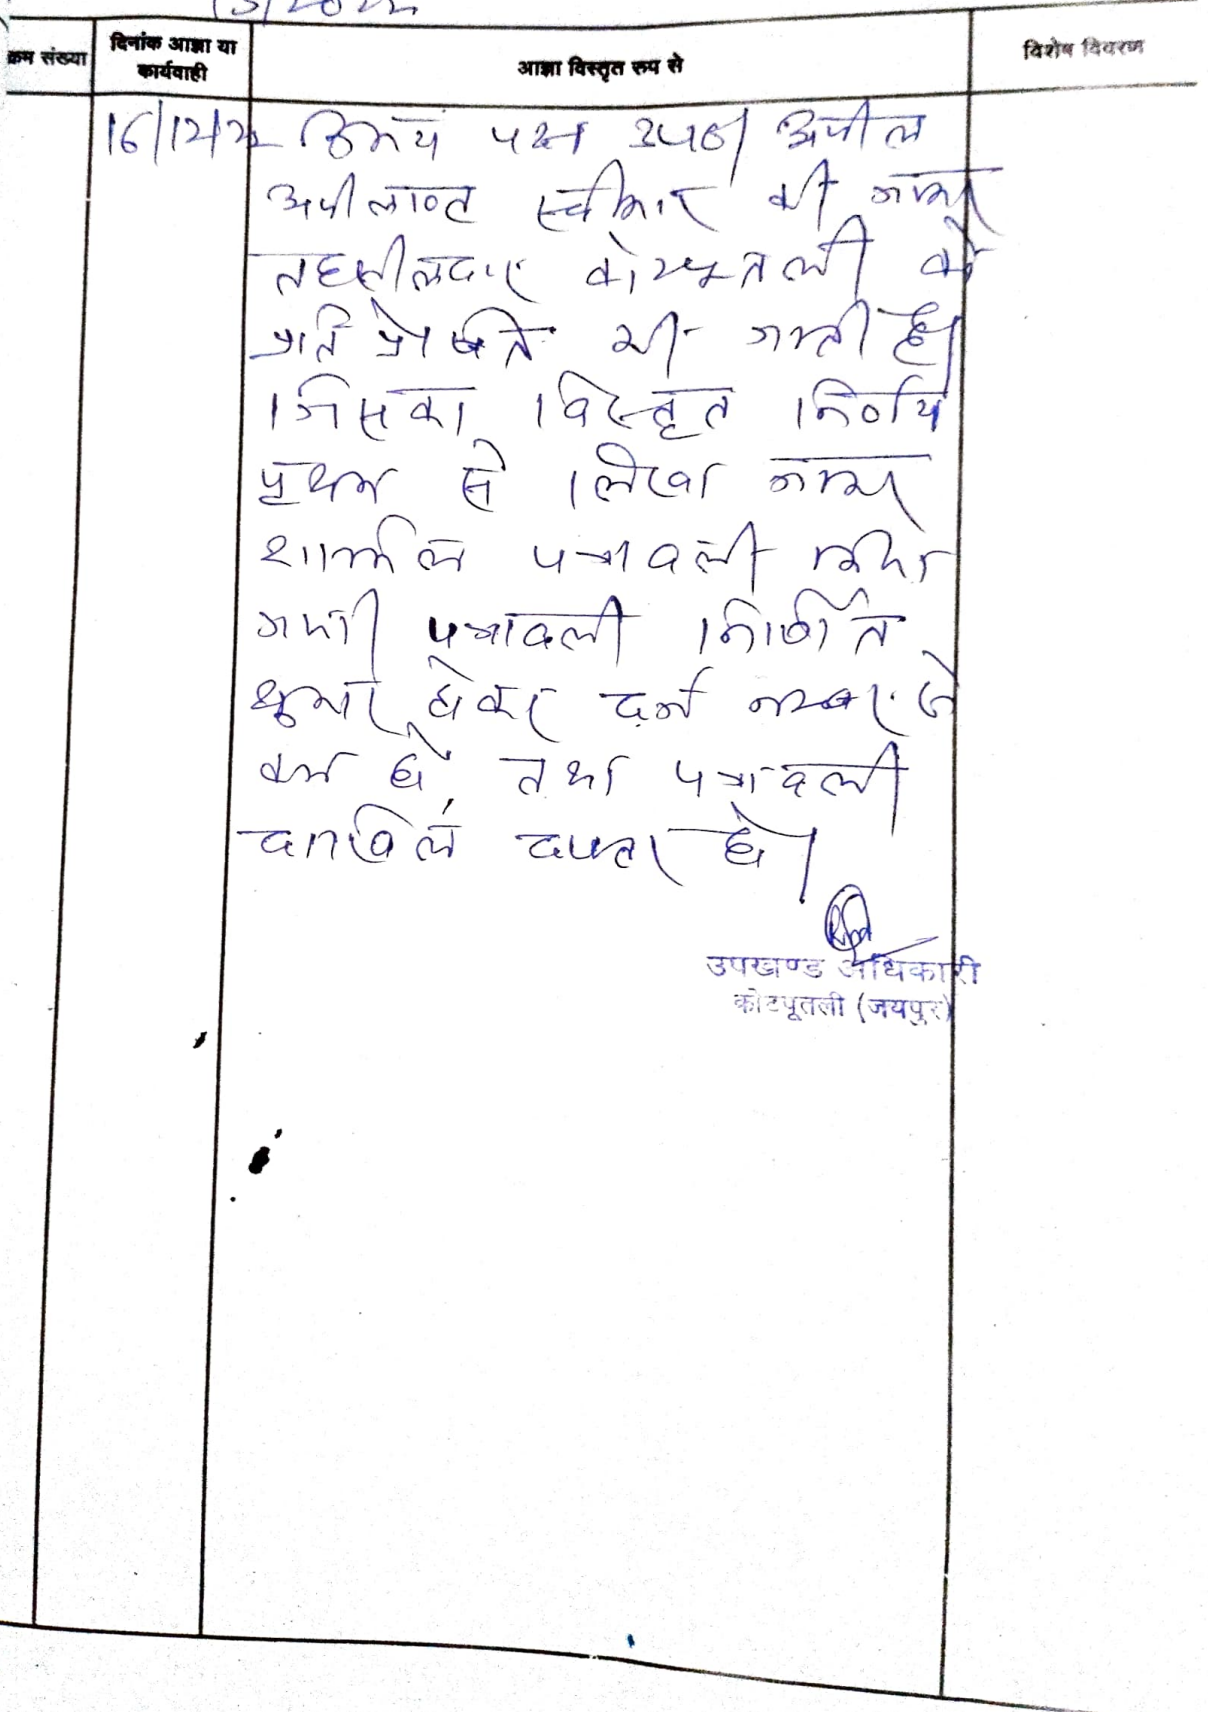 क्रम संख्या
दिनांक आज्ञा या
कार्यवाही
आज्ञा विस्तृत रूप से
विशेष विवरण
16/12/22 उभय पक्ष उपठ। अपील
अपीलान्ट स्वीकार की जाकर
तहसीलदार कोटपूतली को
प्रति प्रेषित की जाती है।
जिसका विस्तृत निर्णय
पृथक से लिखा जाकर
शामिल पत्रावली किया
गया। पत्रावली निर्णीत
शुमार होकर दर्ज नम्बर से
कम हो तथा पत्रावली
दाखिल दफ्तर हो।
उपखण्ड अधिकारी
कोटपूतली (जयपुर)